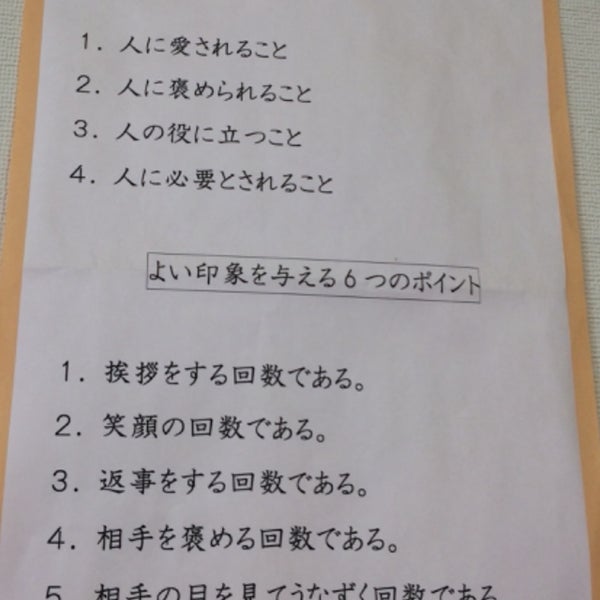 1. 人に愛されること
2. 人に褒められること
3. 人の役に立つこと
4. 人に必要とされること
よい印象を与える6つのポイント
1. 挨拶をする回数である。
2. 笑顔の回数である。
3. 返事をする回数である。
4. 相手を褒める回数である。
5. 相手の目を見てうなずく回数である